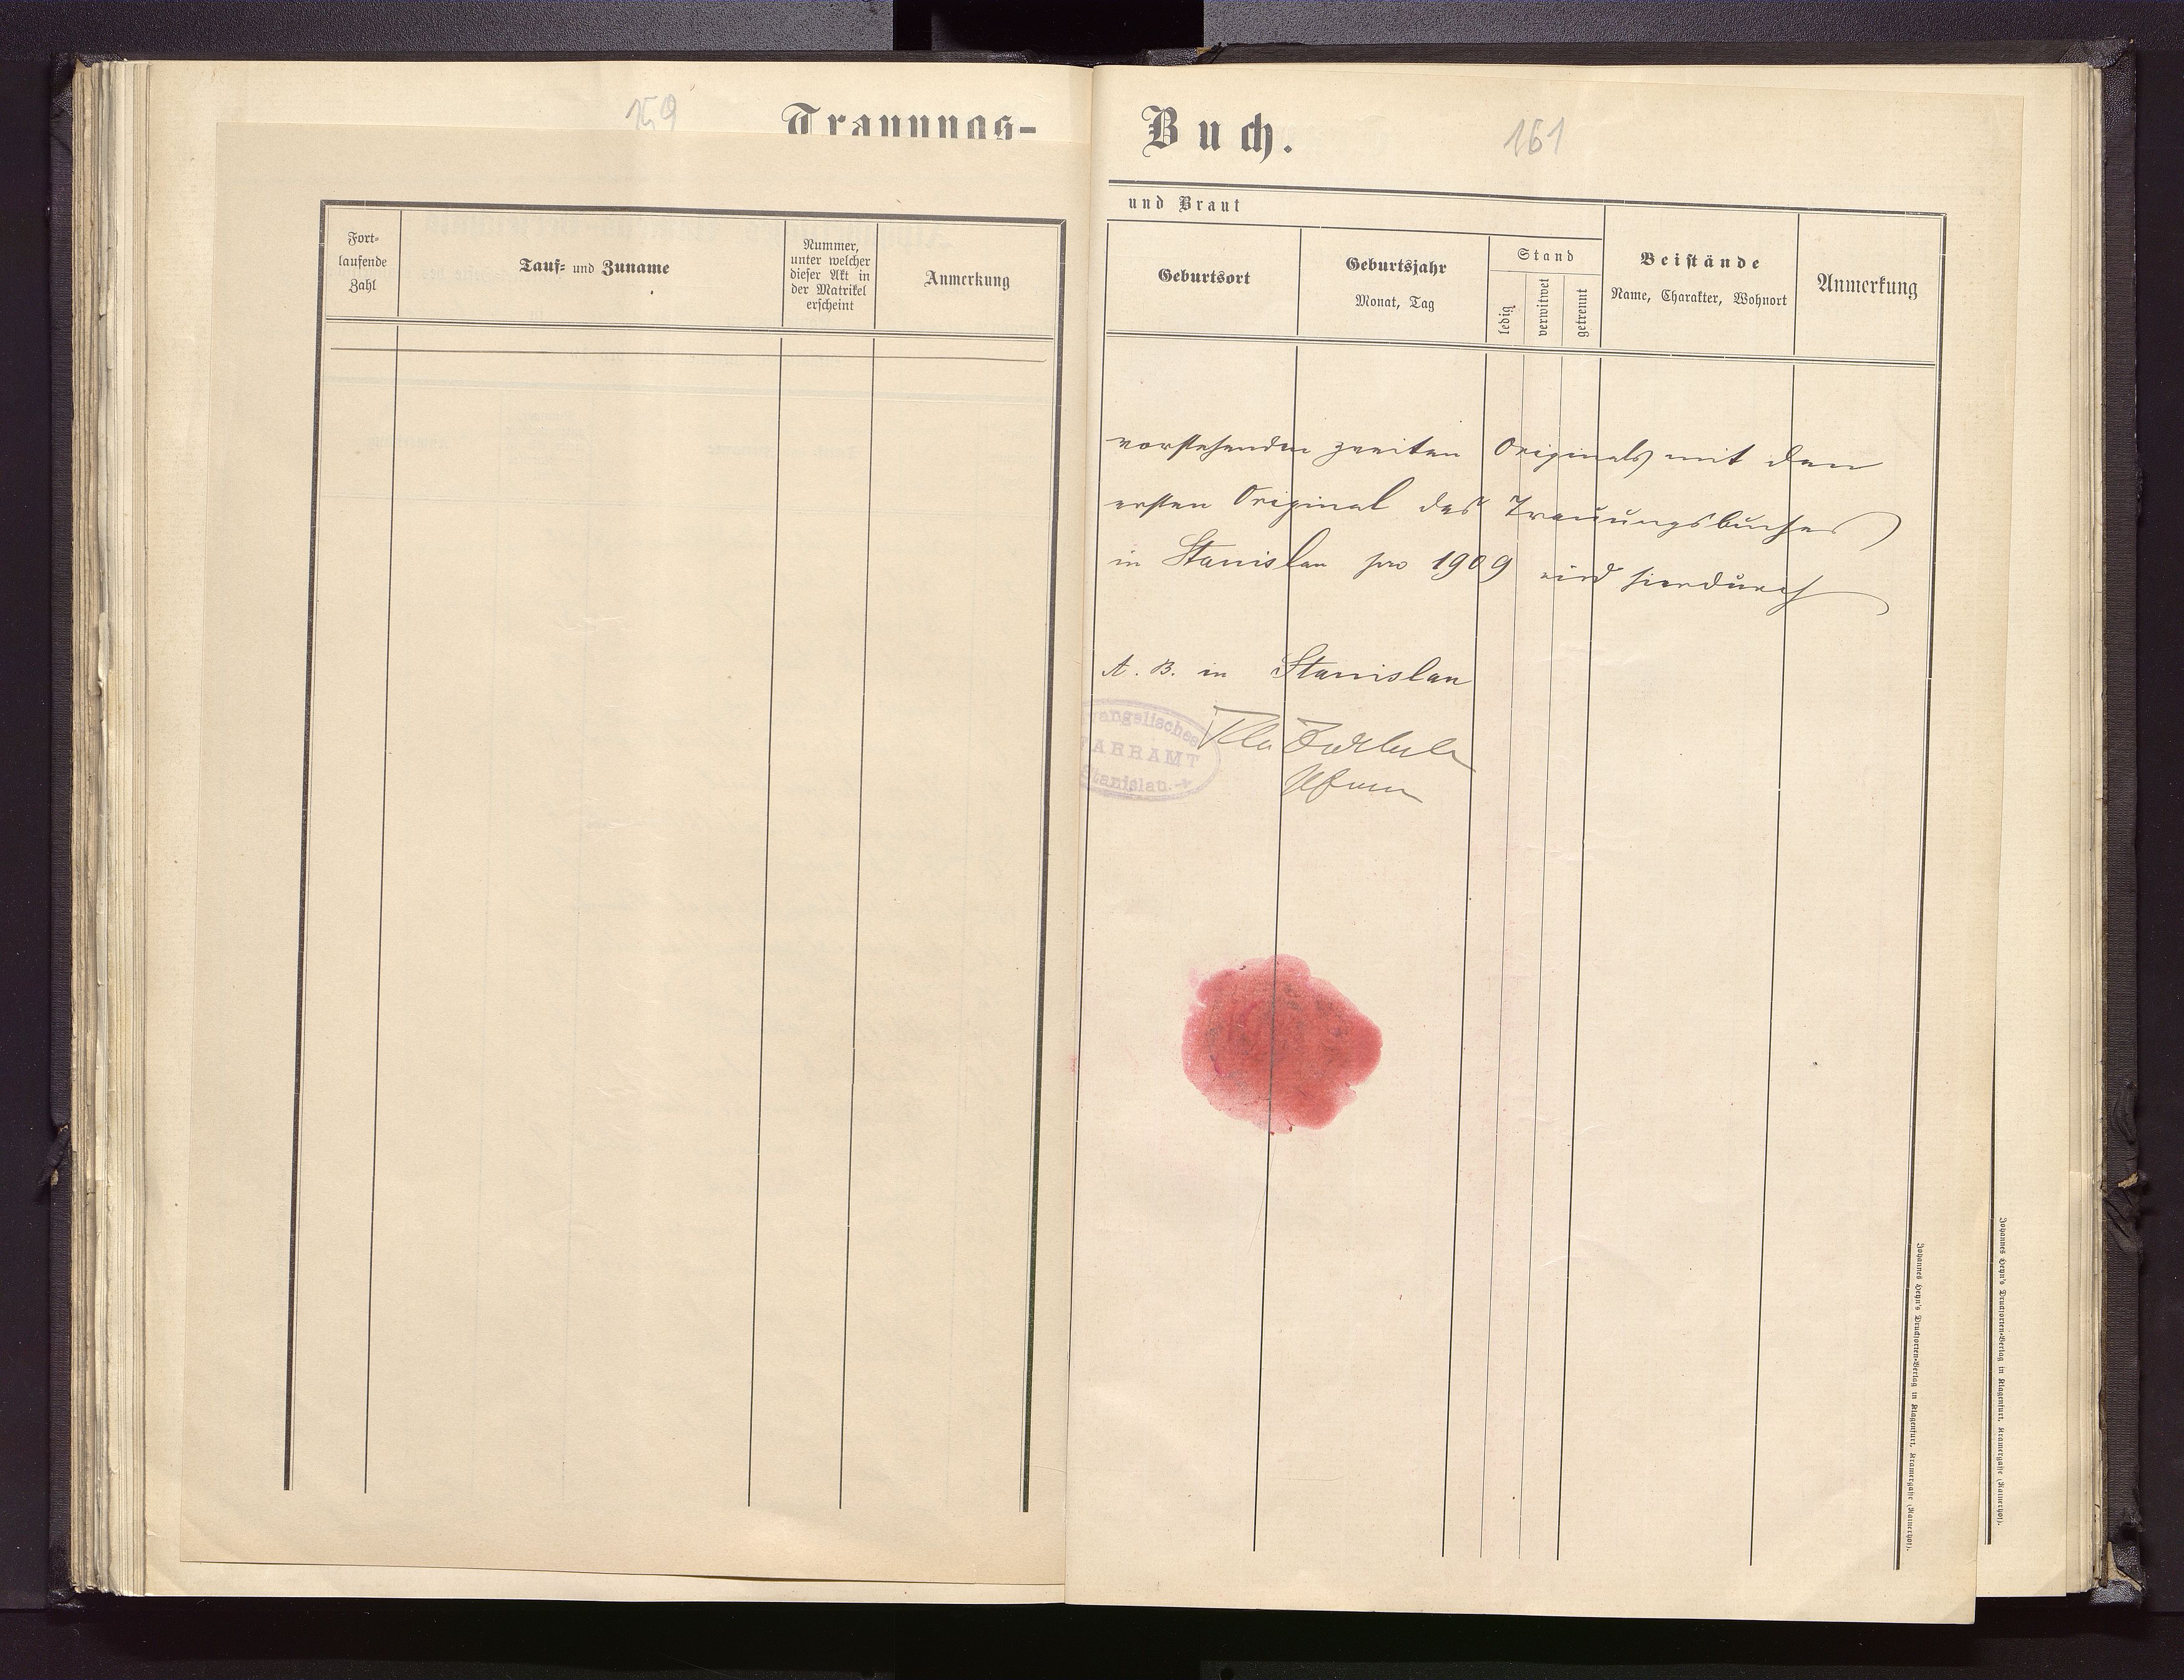 159
Trauungs-
Fort-
laufende
Zahl
Tauf- und Zuname
Nummer,
unter welcher
dieser Akt in
der Matrikel
erscheint
Anmerkung
Buch.
161
und Braut
Geburtsort
Geburtsjahr
Monat, Tag
Stand
ledig
verwitwet
getrennt
Beistände
Name, Charakter, Wohnort
Anmerkung
vorstehenden zweiten Originals mit dem
ersten Original des Trauungsbuches
in Stanislau pro 1909 wird hierdurch
A. B. in Stanislau
Evangelisches
PFARRAMT
Stanislau.
Pfarrer
Johannes Heyn's Drucksorten-Verlag in Klagenfurt, Kramergasse (Rainerhof).
Johannes Heyn's Drucksorten-Verlag in Klagenfurt, Kramergasse (Rainerhof).